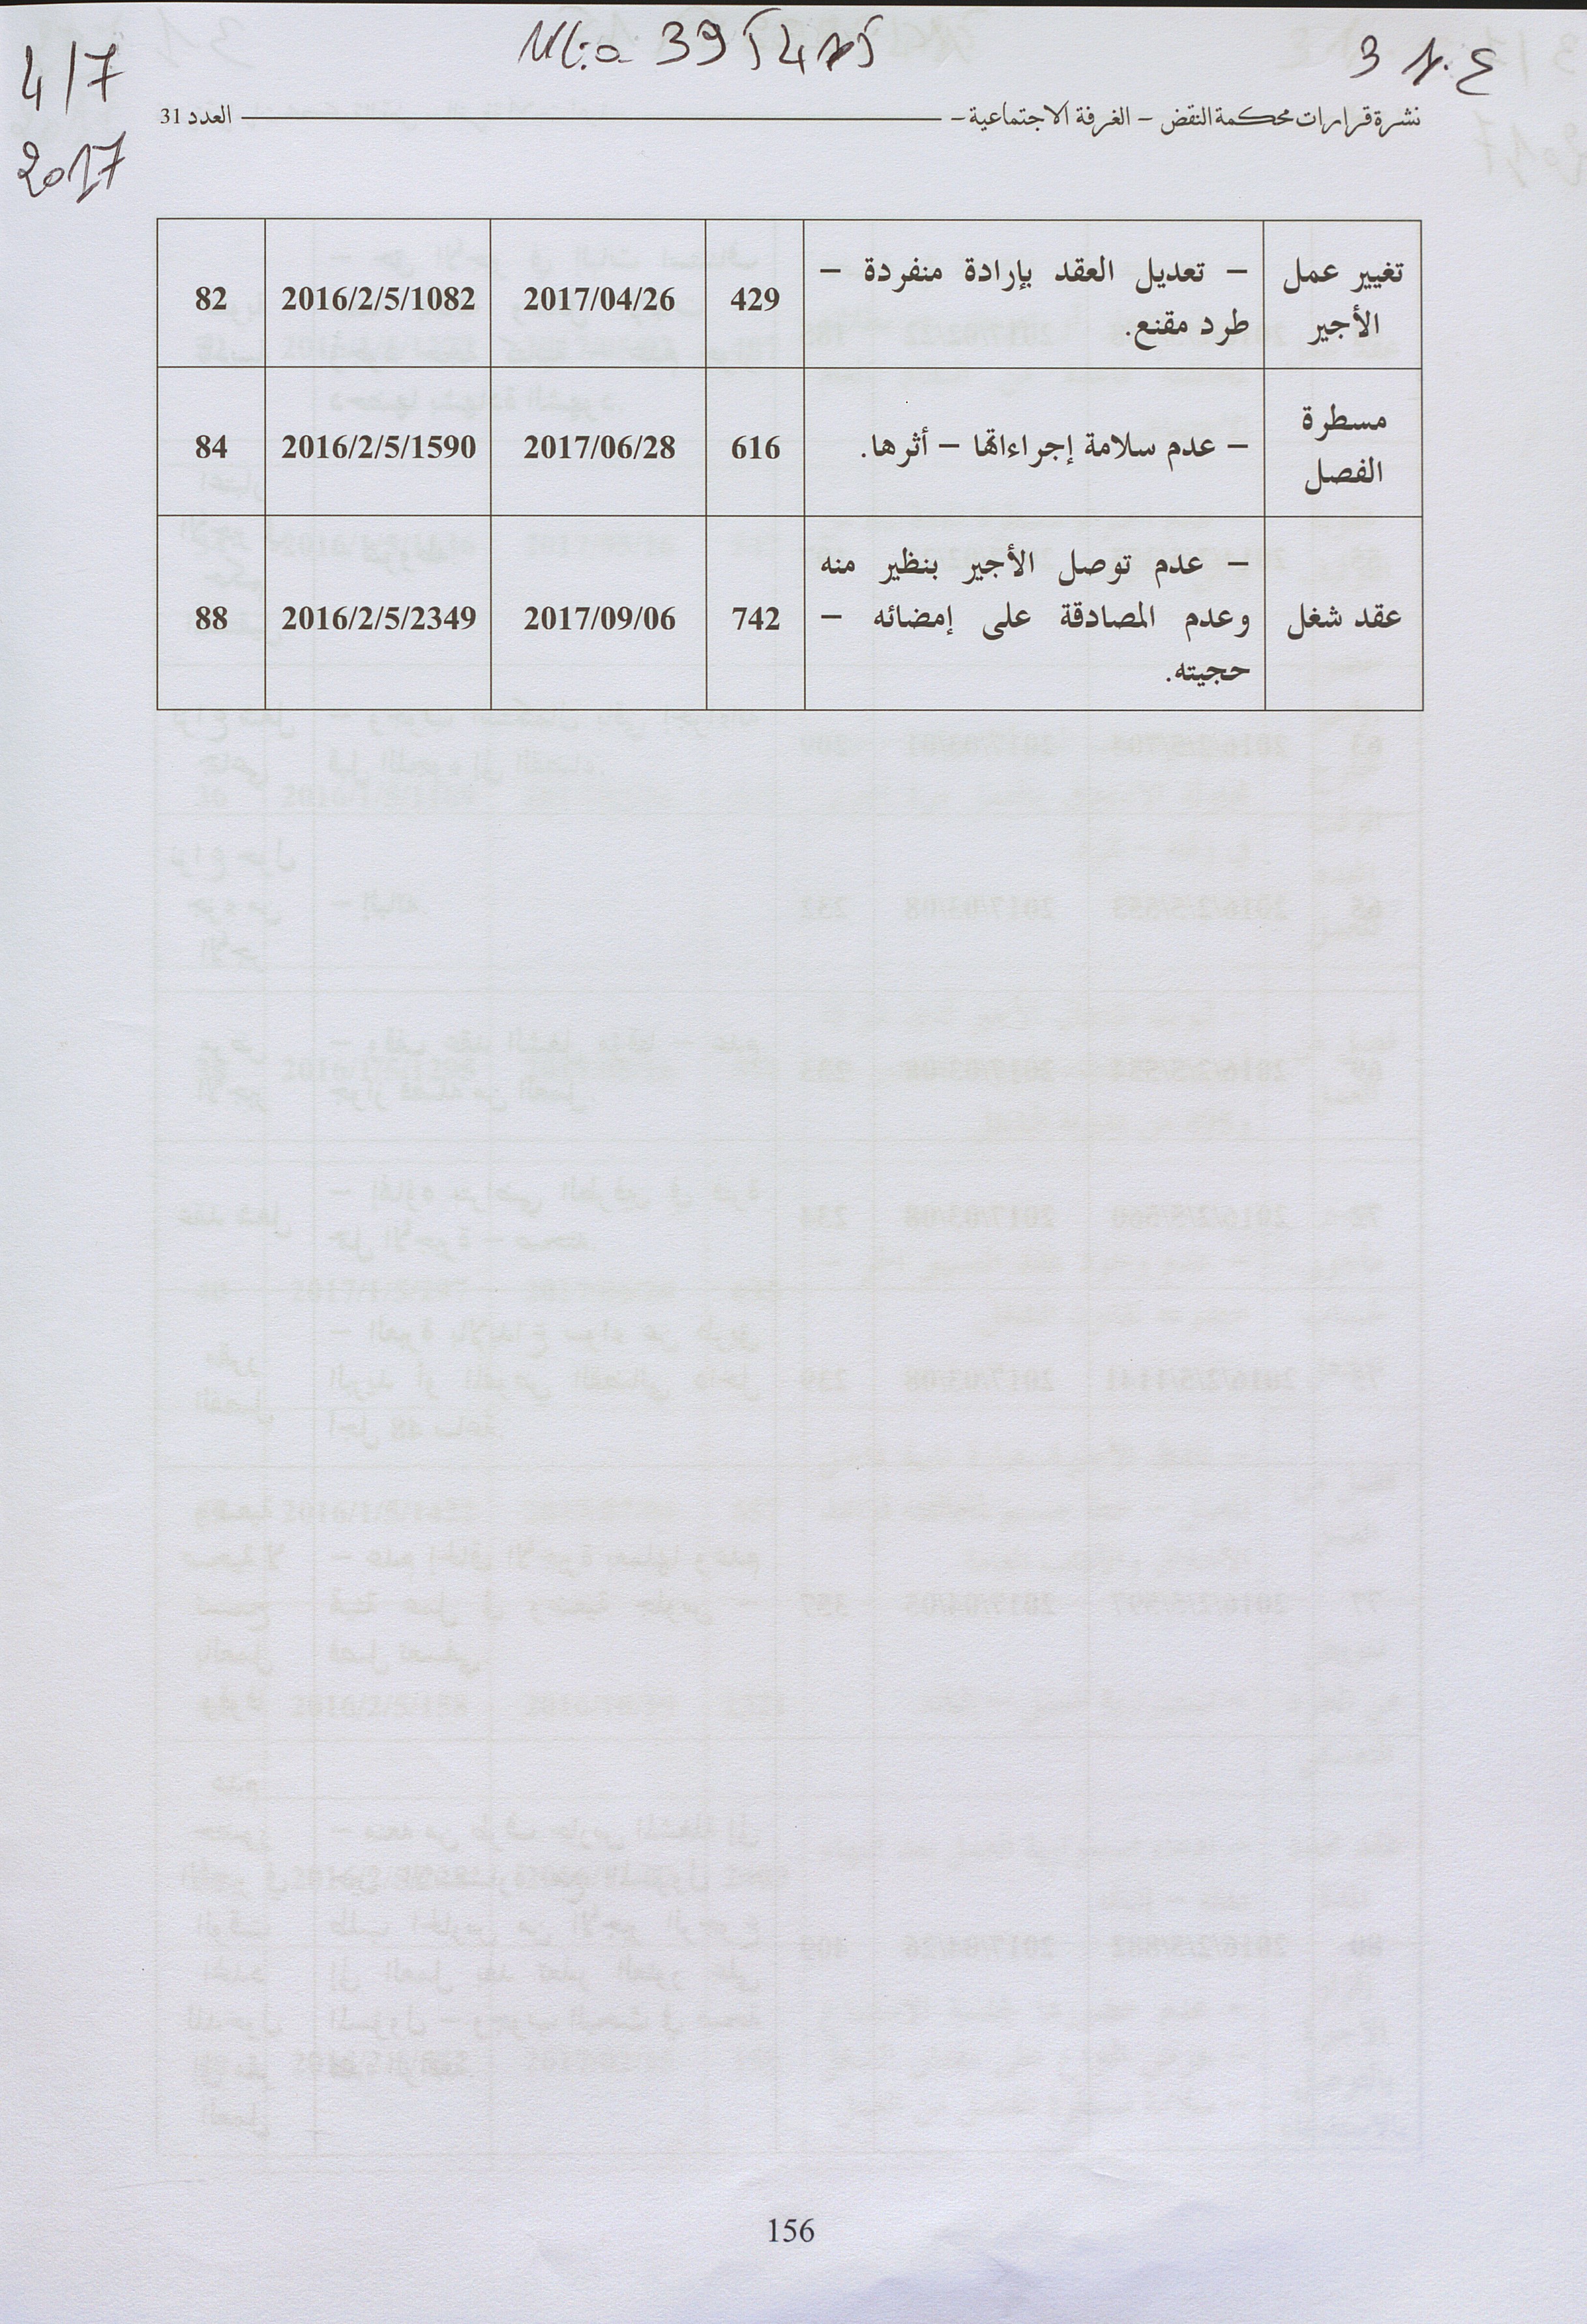 4/7
2017
39
3
نشرة قرارات محكمة النقض – الغرفة الاجتماعية – العدد 31
تغيير عمل الأجير
– تعديل العقد بإرادة منفردة –
طرد مقنع.
429
2017/04/26
2016/2/5/1082
82
مسطرة
الفصل
– عدم سلامة إجراءاتها – أثرها.
616
2017/06/28
2016/2/5/1590
84
عقد شغل
– عدم توصل الأجير بنظير منه
وعدم المصادقة على إمضائه –
حجيته.
742
2017/09/06
2016/2/5/2349
88
156